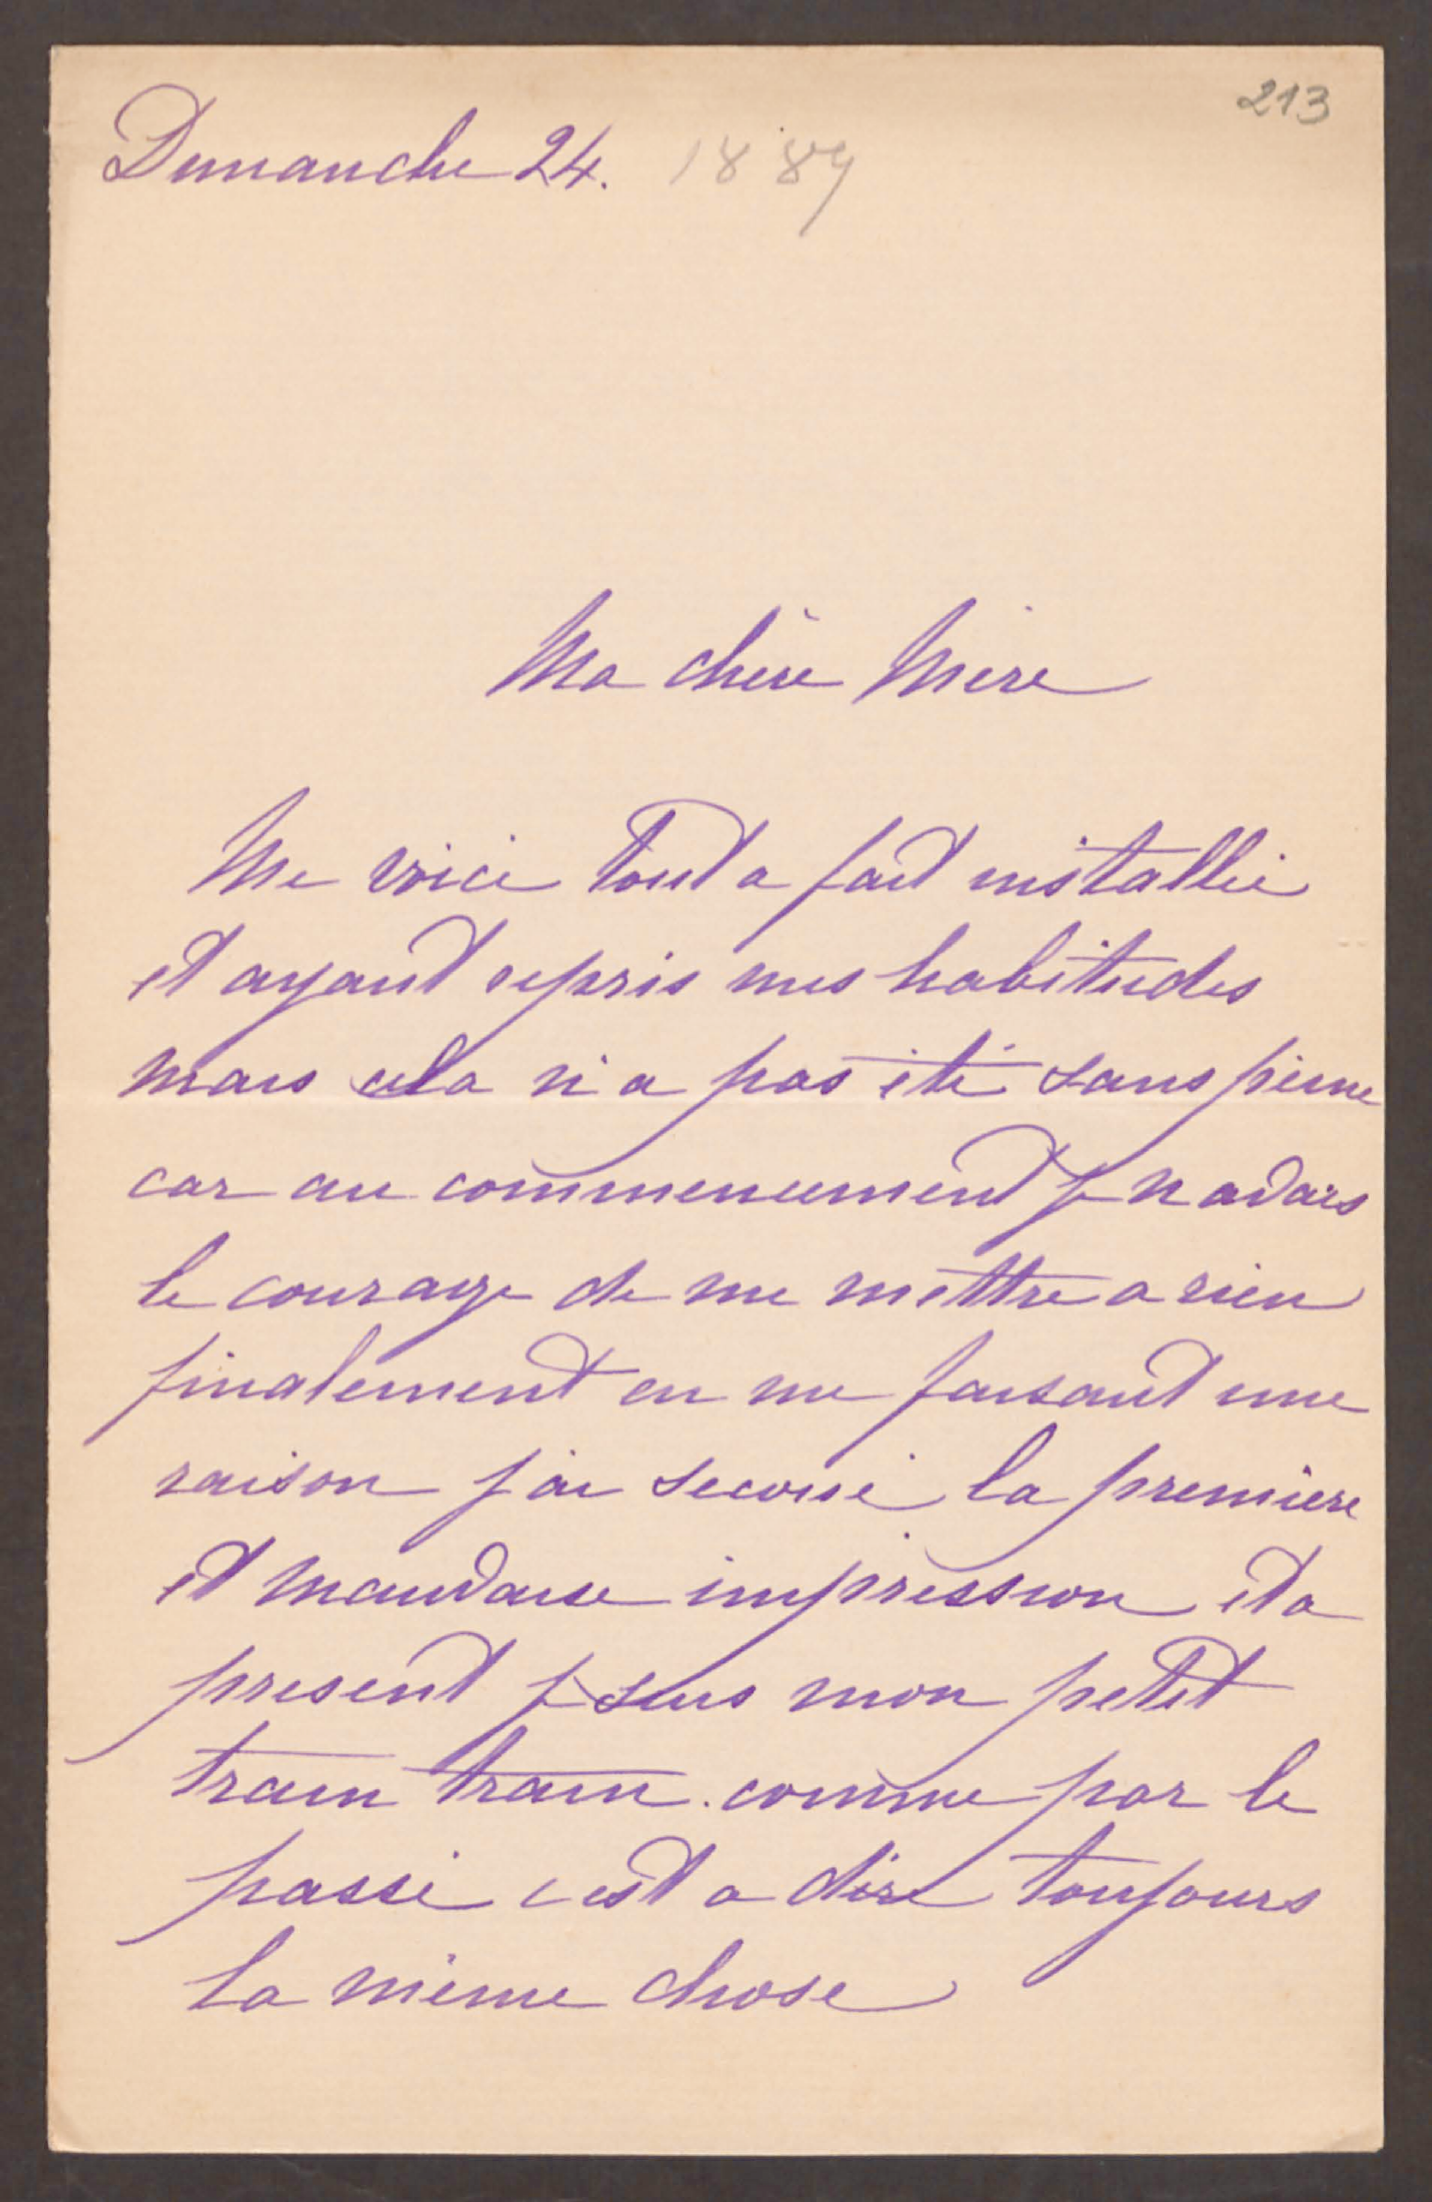 213
Dimanche 24. 1889
Ma chère Mère
Me voici tout a fait installée
et ayant repris mes habitudes
mais cela n'a pas été sans peine
car au commencement je n avais
le courage de me mettre a rien
finalement en me faisant une
raison j'ai secoué la première
et mauvaise impression et a
present je suis mon petit
train train. comme par le
passé c est a dire toujours
la même chose